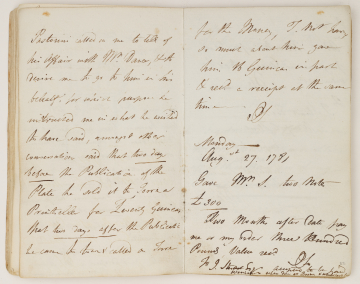 Pastorini called on me to tell of
his affair with Mr. Dance, & to
desire me to go to him in his
behalf, for which purpose he
intrusted me in what he wished
to have said, amongst other
conversation said that two days
before the Publication of the
Plate he sold it to Torre a
Printseller for Seventy Guineas,
that two days after the Publicati
he came to Torre called a Torre
for the Money, T. Not having
so much about him gave
him 48 Guineas in part
& took a receipt at the same
time
Monday
Augst 27. 1781
Gave Mr. S. two Note
£300
Two Month after Date pay
me or my order Three Hundred
Pounds Value recd
To J. Stuart